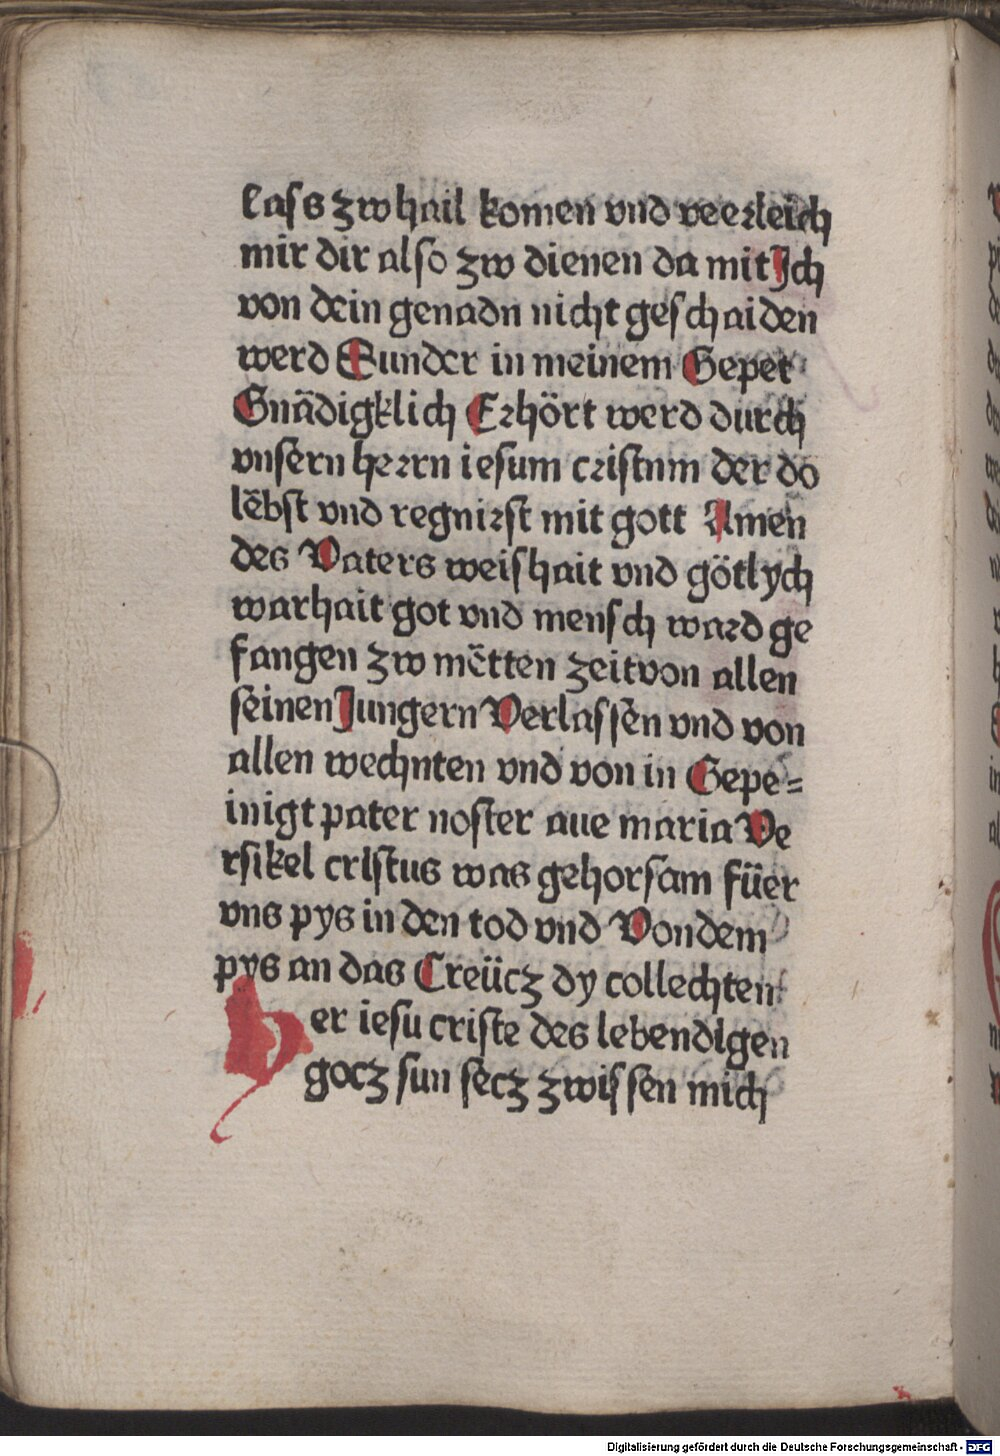 lass zw hail komen vnd veerleich
mir dir also zw dienen da mit Ich
von dein genadn nicht geschaiden
werd Sunder in meinem Gepet
Gnädigklich Erhört werd durch
vnsern herrn iesum cristum der do
lēbst vnd regnirst mit gott Amen
des Vaters weishait vnd götlych
warhait got vnd mensch ward ge
fangen zw mētten zeit von allen
seinen Jungern Verlassen vnd von
allen wechnten vnd von in Gepe=
inigt pater noster aue maria Ve
rsikel cristus was gehorsam füer
vns pys in den tod vnd Von dem
pys an das Creücz dy collechten
Her iesu criste des lebendigen
gocz sun secz zwissen mich
Digitalisierung gefördert durch die Deutsche Forschungsgemeinschaft - DFG